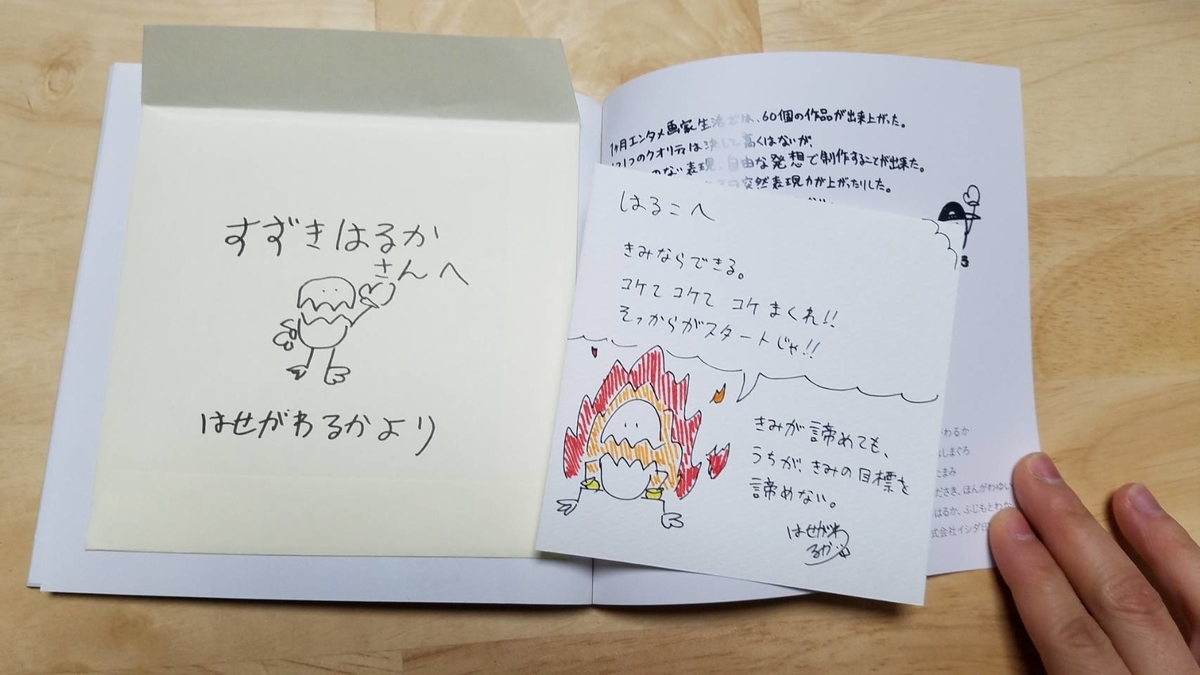 すずきはるか
さんへ
はせがわるかより
1ヶ月エンタメ画家生活では、60個の作品が出来上がった。
1つ1つのクオリティは決して高くはないが、
のない表現、自由な発想で制作することが出来た。
突然表現力が上がったりした。
はるこへ
きみならできる。
コケて コケて コケまくれ!!
そっからがスタートじゃ!!
きみが諦めても、
うちが、きみの目標を
諦めない。
はせがわ
るか
がわるか
しまぐろ
たまみ
ださき、ほんがわゆい
はるか、ふじもとわか
式会社イシダ印